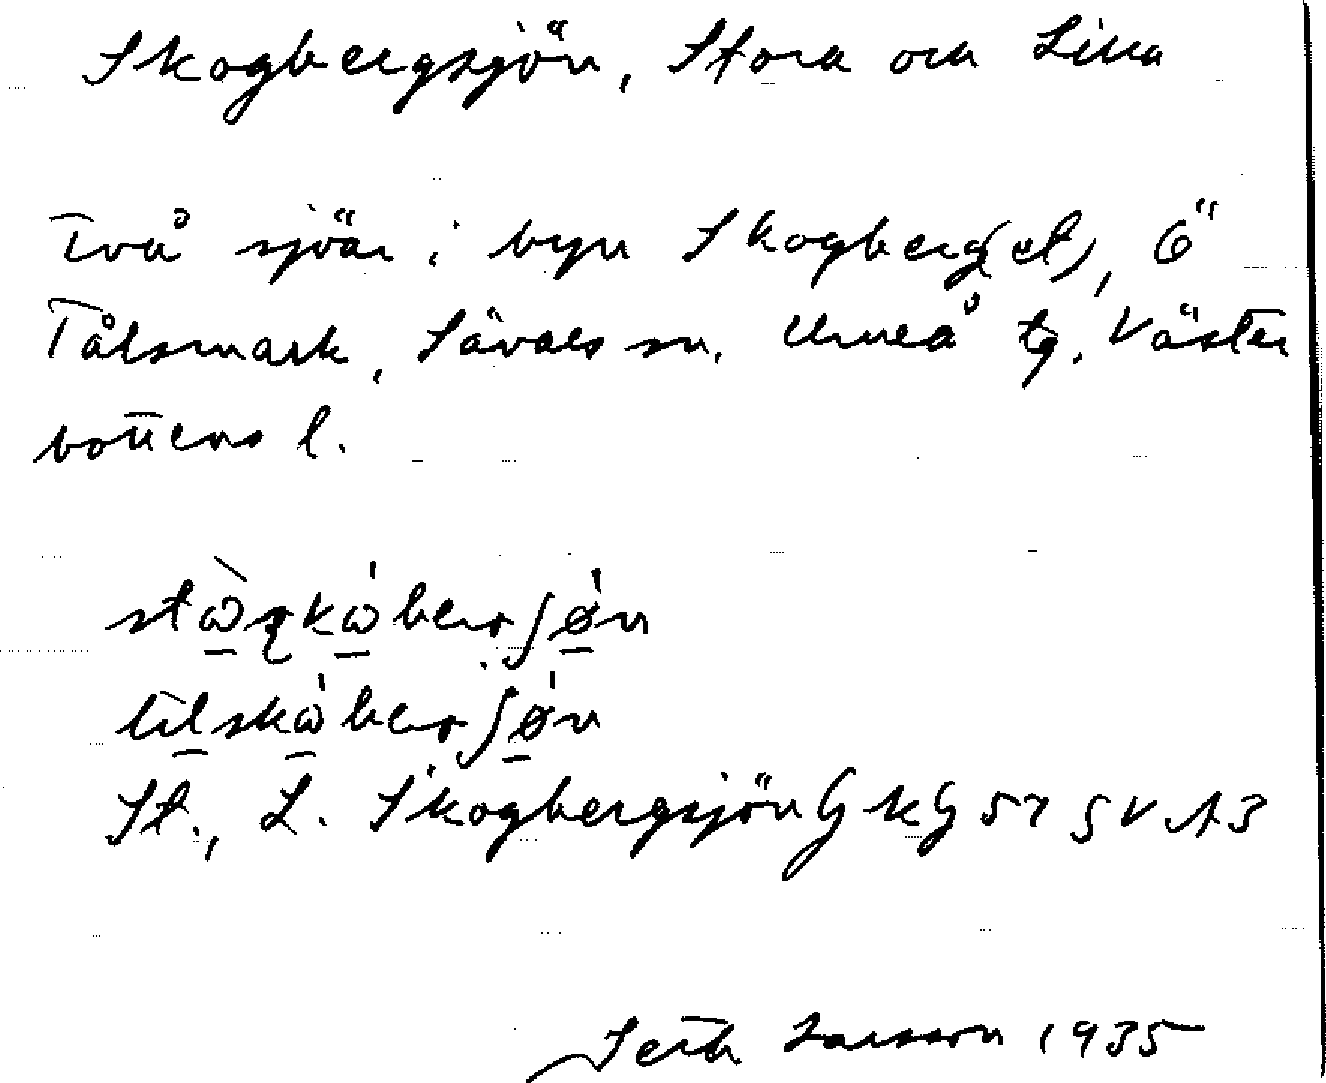 Skogbergsjön, Stora och Lilla
Två sjöar i byn Skogberg(et), Ö
Tålsmark, Sävars sn. Umeå tg. Väster
bottens l.
St., L. Skogbergsjön GkG 57 SV A3
Seth Larsson 1935